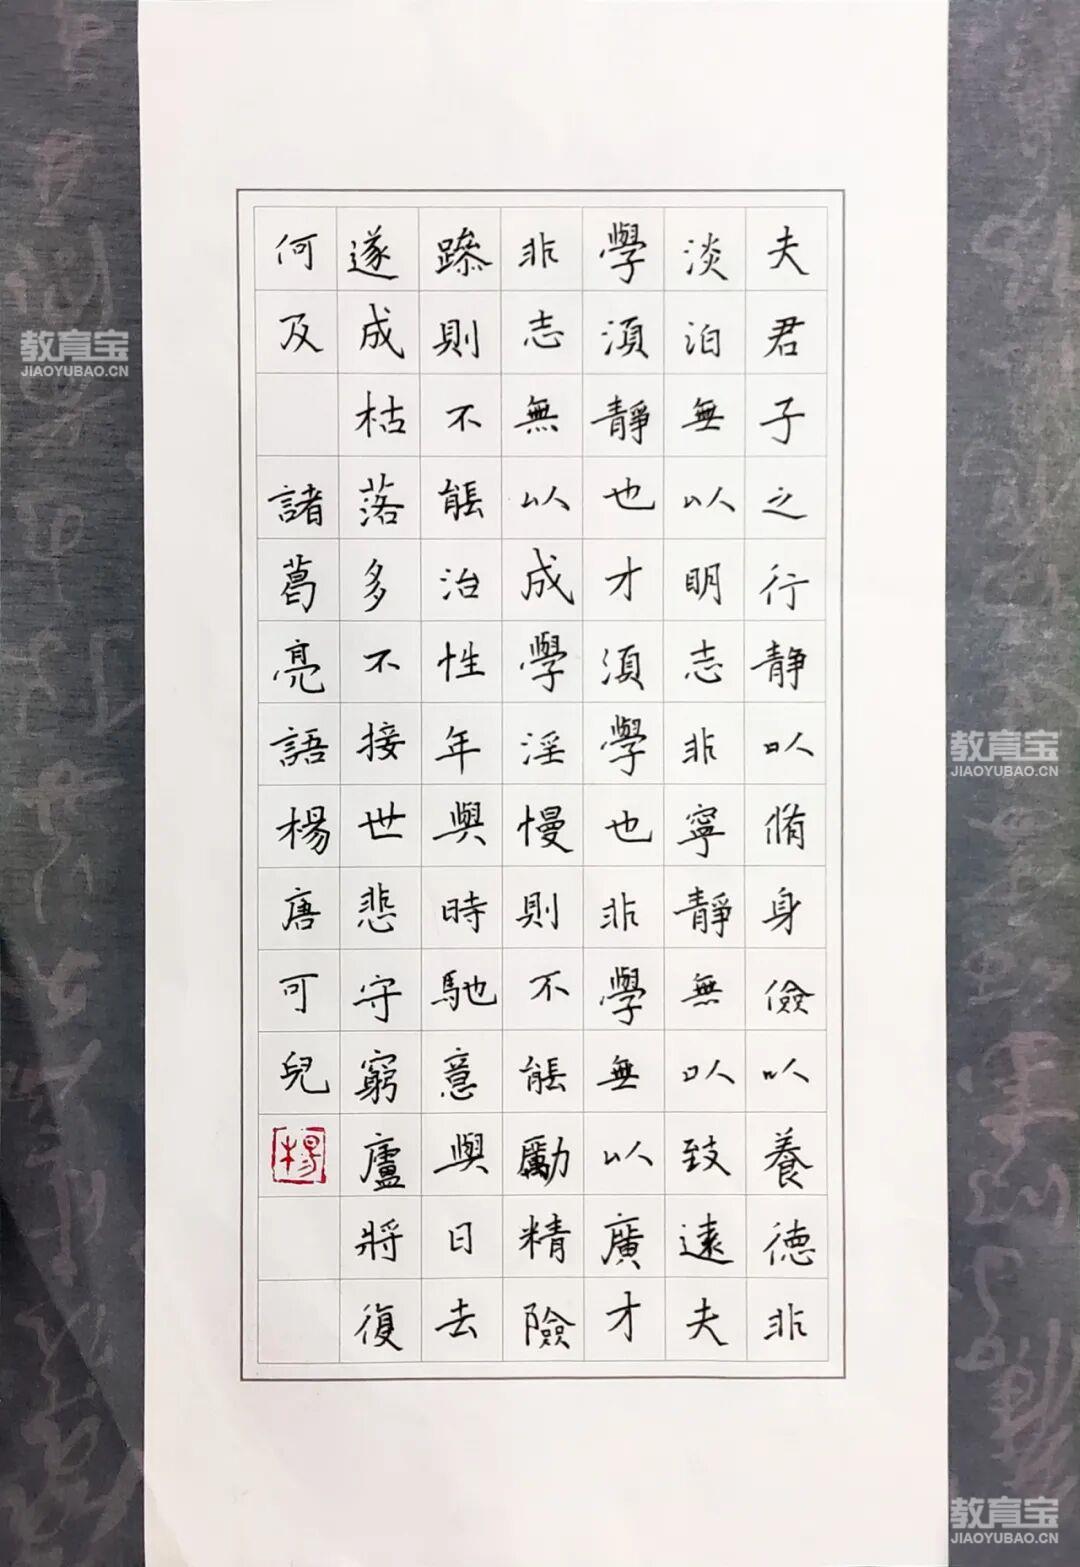 夫君子之行静以脩身儉以養德非
淡泊無以明志非寧靜無以致遠夫
學須靜也才須學也非學無以廣才
非志無以成學淫慢則不能勵精險
躁則不能治性年與時馳意與日去
遂成枯落多不接世悲守窮廬將復
何及 諸葛亮語楊唐可兒
楊
教育宝
JIAOYUBAO.CN
教育宝
JIAOYUBAO.CN
教育宝
JIAOYUBAO.CN